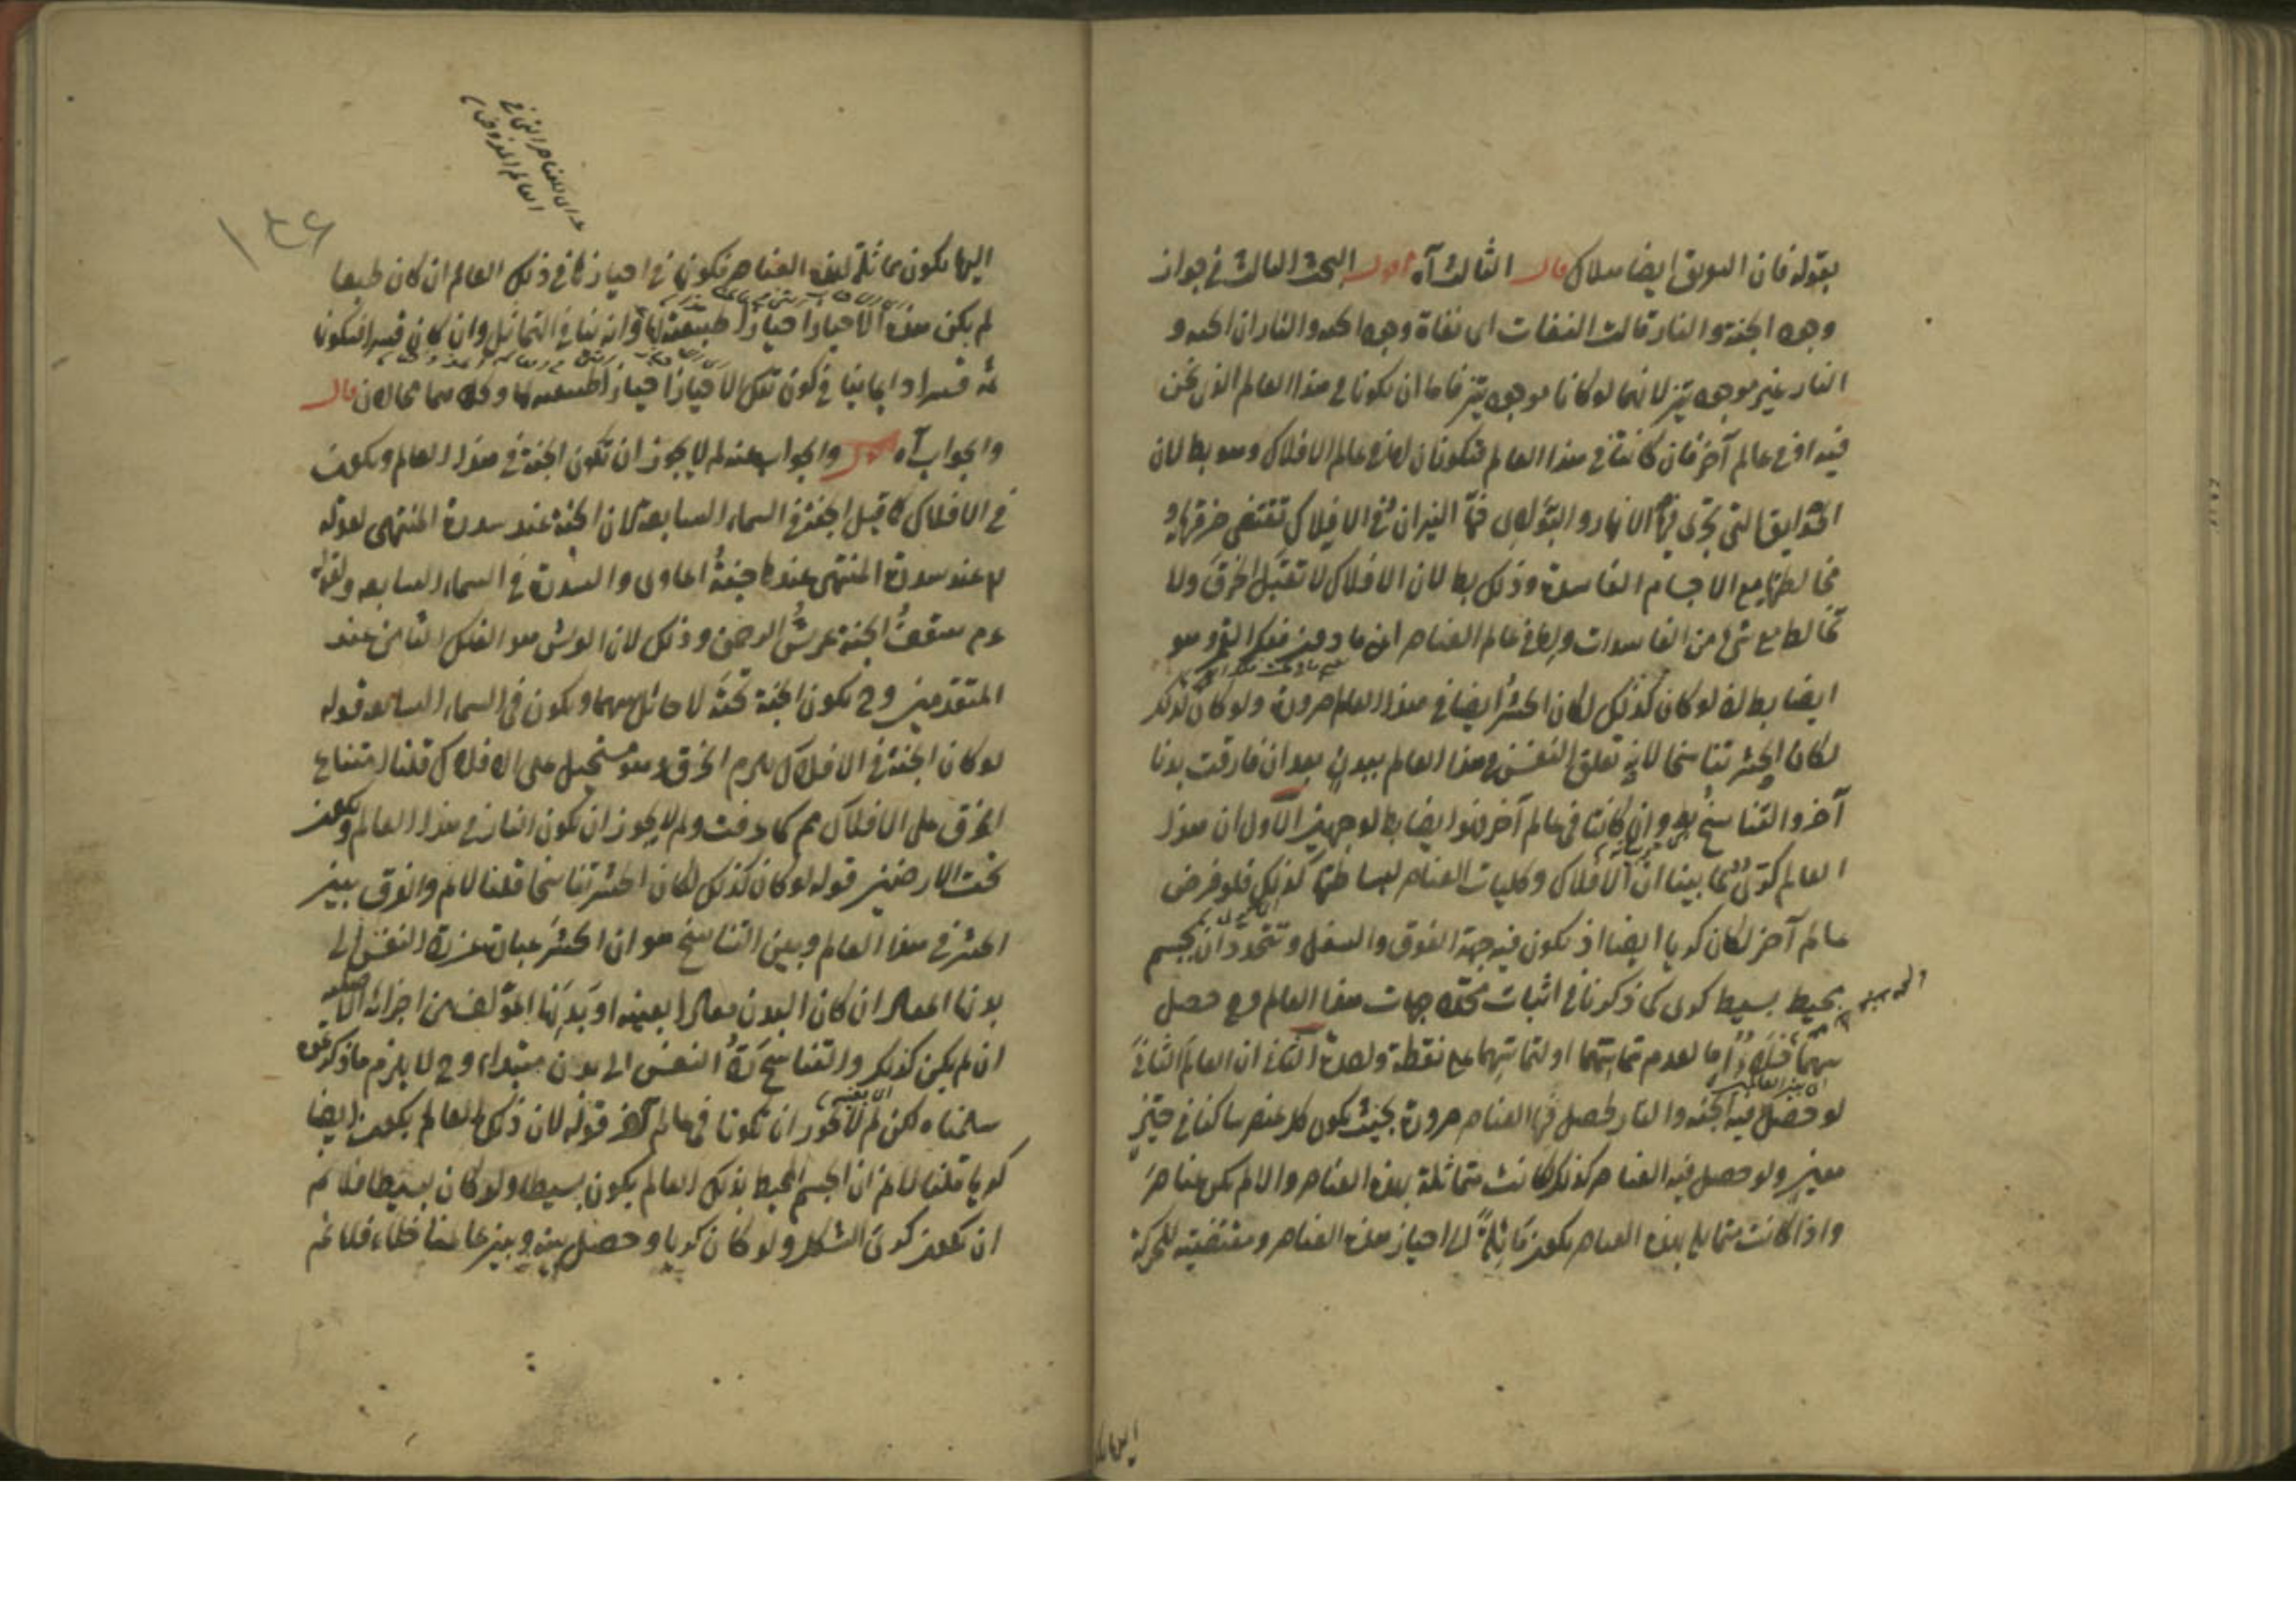 بقوله فان التفريق ايضا هلاك قال الثالث آه اقول البحث الثالث في جواز
وجود الجنة والنار قالت النفات اى نفاة وجود الجنة والنار ان الجنة و
النار غير موجودتين لانهما لو كانا موجودتين فاما ان يكونا في هذا العالم الذى نحن
فيه او في عالم آخر فان كانتا في هذا العالم فتكونان اما في عالم الافلاك وهو بط لان
الحدايق التى تجرى فيها الانهار و فيها النيران في الافلاك تقتضى خرقها و
مخالطتها مع الاجسام الفاسدة وذلك بط لان الافلاك لا تقبل الخرق ولا
تخالط مع شئ من الفاسدات واما في عالم العناصر اى ما دون فلك القمر وهو
ايضا بط لانه لو كان كذلك لكان الحشر ايضا في هذا العالم ضرورة ولو كان كذلك
لكان الحشر تناسخا لانه تعلق النفس في هذا العالم ببدن بعد ان فارقت بدنا
آخر والتناسخ بط وان كانتا في عالم آخر فهو ايضا بط لوجهين الاول ان هذا
العالم كرى لما بينا ان الافلاك وكليات العناصر لبساطتها كذلك فلو فرض
عالم آخر لكان كريا ايضا اذ يكون فيه جهة الفوق والسفل وتتحددان بجسم
محيط بسيط كرى كما ذكرنا في اثبات محدد جهات هذا العالم وح حصل
بينهما خلاء اما لعدم تماسهما او لتماسهما على نقطة واحدة الثانى ان العالم الثانى
لو حصل فيه الجنة والنار لحصل فيها العناصر ضرورة بحيث يكون كل عنصر ساكنا في حيز
معين ولو حصل فيه العناصر كذلك لكانت متماثلة بهذه العناصر والا لم يكن عناصر
واذا كانت متماثلة بهذه العناصر يكون مائلة الى احياز هذه العناصر ومقتضية للحركة
اليها يكون
١٤٦
للعناصر التى في
العالم المفروض
اليها يكون مماثلة لهذه العناصر فكونها في احيازها في ذلك العالم ان كان طبعا
لم يكن هذه الاحياز احيازا طبيعية لها وانه ينافي التماثل وان كان قسرا فيكون
ثمة قسرا دايما ينافي كون تلك الاحياز احيازا طبيعية لها وكلاهما محالان قال
والجواب آه اقول والجواب عنه لم لا يجوز ان تكون الجنة في هذا العالم ويكون
في الافلاك كما قيل الجنة في السماء السابعة لان الجنة عند سدرة المنتهى لقوله
تع عند سدرة المنتهى عندها جنة الماوى والسدرة في السماء السابعة ولقوله
عم سقف الجنة عرش الرحمن وذلك لان العرش هو الفلك الثامن عند
المتقدمين وح يكون الجنة تحته لا حائل بينهما ويكون في السماء السابعة قوله
لو كان الجنة في الافلاك يلزم الخرق وهو مستحيل على الافلاك قلنا امتناع
الخرق على الافلاك مم كما عرفت ولم لا يجوز ان يكون النار في هذا العالم ويكون
تحت الارضين قوله لو كان كذلك لكان الحشر تناسخا قلنا لانم والفرق بين
الحشر في هذا العالم وبين التناسخ هو ان الحشر عبارة عن رد النفس الى
بدنها المعاد ان كان البدن معادا بعينه او بدنها المؤلف من اجزائه الاصلية
ان لم يكن كذلك والتناسخ رد النفس الى بدن مبتداء وح لا يلزم ما ذكرتموه
سلمناه لكن لم لا يجوز ان تكونا في عالم آخر قوله لان ذلك العالم يكون ايضا
كريا قلنا لانم ان الجسم المحيط بذلك العالم يكون بسيطا ولو كان بسيطا فلا نم
ان يكون كرى الشكل ولو كان كريا وحصل بينه وبين عالمنا خلاء فلا نم